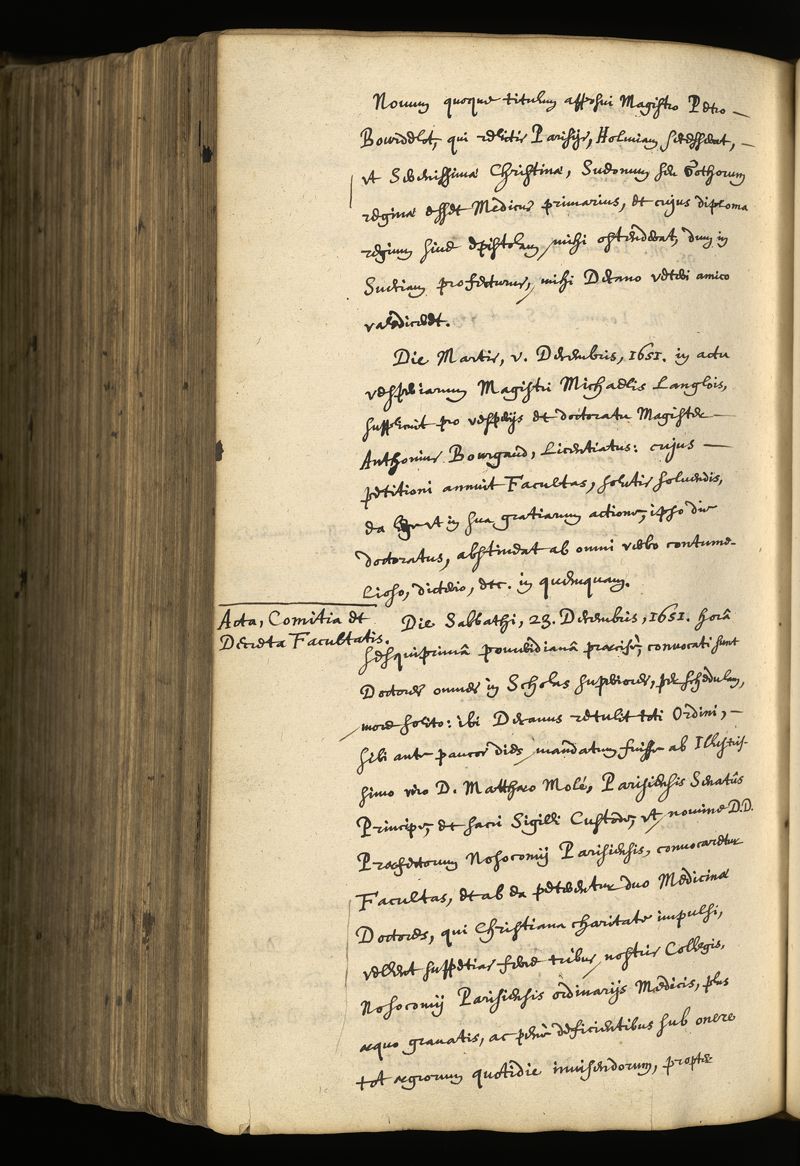 Novum quoque titulum apposui Magistro Petro —
Bourdelot, qui relictis Parisijs, Holmiam secesserat, —
vt Serenissimæ Christinæ, Sueonum seu Gothorum
reginæ esset Medicus primarius, et cujus diploma
regium sive epistolam, mihi ostenderat, dum in
Sueciam profecturus, mihi Decano veteri amico
valediceret.
Die Martis, v. Decembris, 1651. in actu
vesperiarum Magistri Michaelis Langlois,
supplicuit pro vesperijs et doctoratu Magister —
Anthonius Bourgaud, Licentiatus: cujus —
petitioni annuit Facultas, solutis solvendis,
ea lege vt in sua gratiarum actione, ipso die
doctoratus, abstineat ab omni verbo contume-
lioso, dicterio, etc. in quemquam.
Acta, Comitia et
Decreta Facultatis.
Die Sabbathi, 23. Decembris, 1651. horâ
sesquiprimâ pomeridianâ præcisè, convocati sunt
Doctores omnes in Scholas superiores, per schedulam,
more solito: ibi Decanus retulit toti Ordini, —
sibi ante paucos dies, mandatum fuisse ab Illustris-
simo viro D. Matthæo Molé, Parisiensis Senatûs
Principe, et sacri Sigilli Custode, vt, nomine D.D.
Præfectorum Nosocomij Parisiensis, convocaretur
Facultas, et ab ea peterentur duo Medicinæ
Doctores, qui Christiana charitate impulsi,
vellent suppetias ferre tribus, nostris Collegis,
Nosocomij Parisiensis ordinarijs Medicis, plus
æquo gravatis, ac penè deficientibus sub onere
tot ægrorum quotidie invisendorum, propter